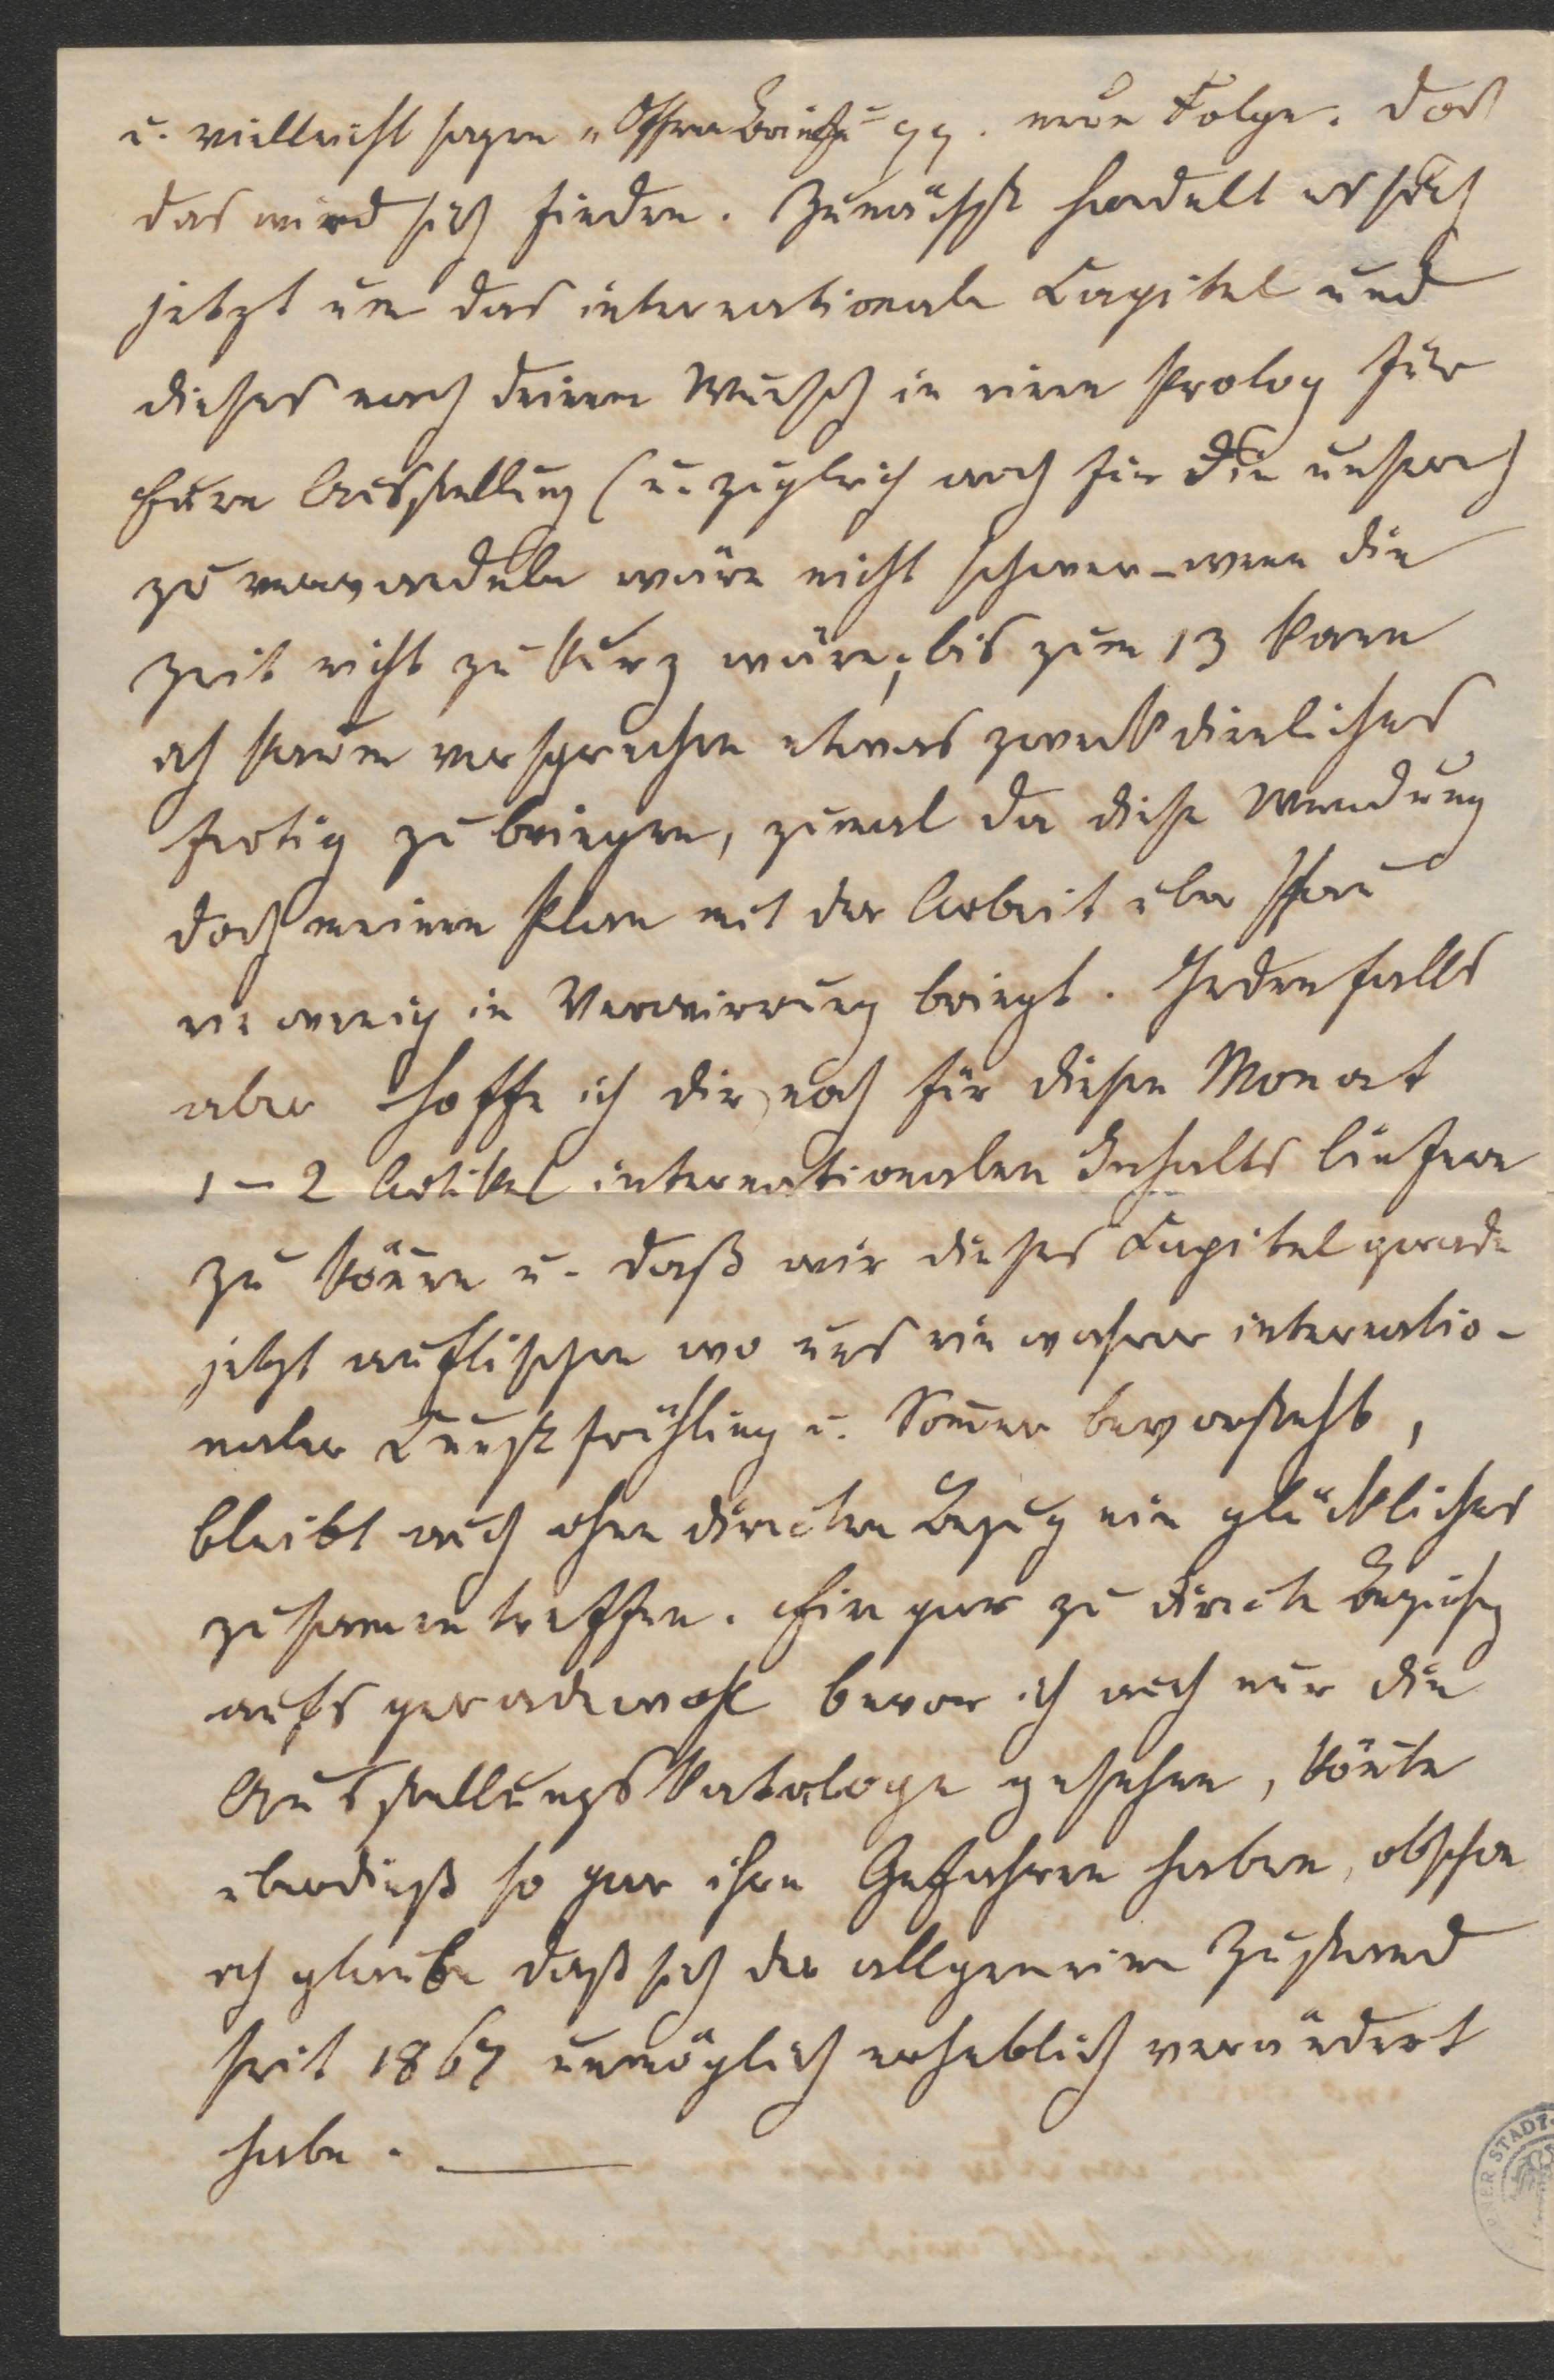 u. vielleicht sagen „Offene Briefe“ pp. neue Folge. Doch
das wird sich finden. Zunächst handelt es sich
jetzt um das internationale Capitel und
dieses nach deinem Wunsch in einen Prolog für
Eure Ausstellung (u. zugleich auch für die unsere)
zu verwandeln wäre nicht schwer – wenn die
Zeit nicht zu kurz wäre; bis zum 13 kann
ich kaum versprechen etwas zweckdienliches
fertig zu bringen, zumal da diese Wendung
doch meinen Plan mit der Arbeit über
ein wenig in Verwirrung bringt. Jedenfalls
aber hoffe ich dir noch für diesen Monat
1–2 Artikel internationalen Inhalts liefern
zu können u. daß wir dieses Capitel gerade
jetzt auftischen wo uns ein wahrer internatio-
naler Kunstfrühling u. Sommer bevorsteht,
bleibt auch ohne directen Bezug ein glückliches
Zusammentreffen. Eine gar zu directe Beziehung
aufs geradewohl bevor ich auch nur die
Ausstellungskataloge gesehen, könnte
überdieß so gar ihre Gefahren haben, obschon
ich glaube daß sich der allgemeine Zustand
seit 1867 unmöglich erheblich verändert
habe. —
STADT